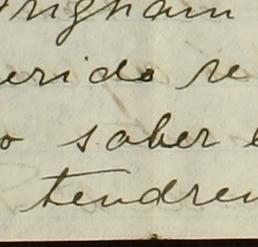 righam
erido re
o saber e
tendren